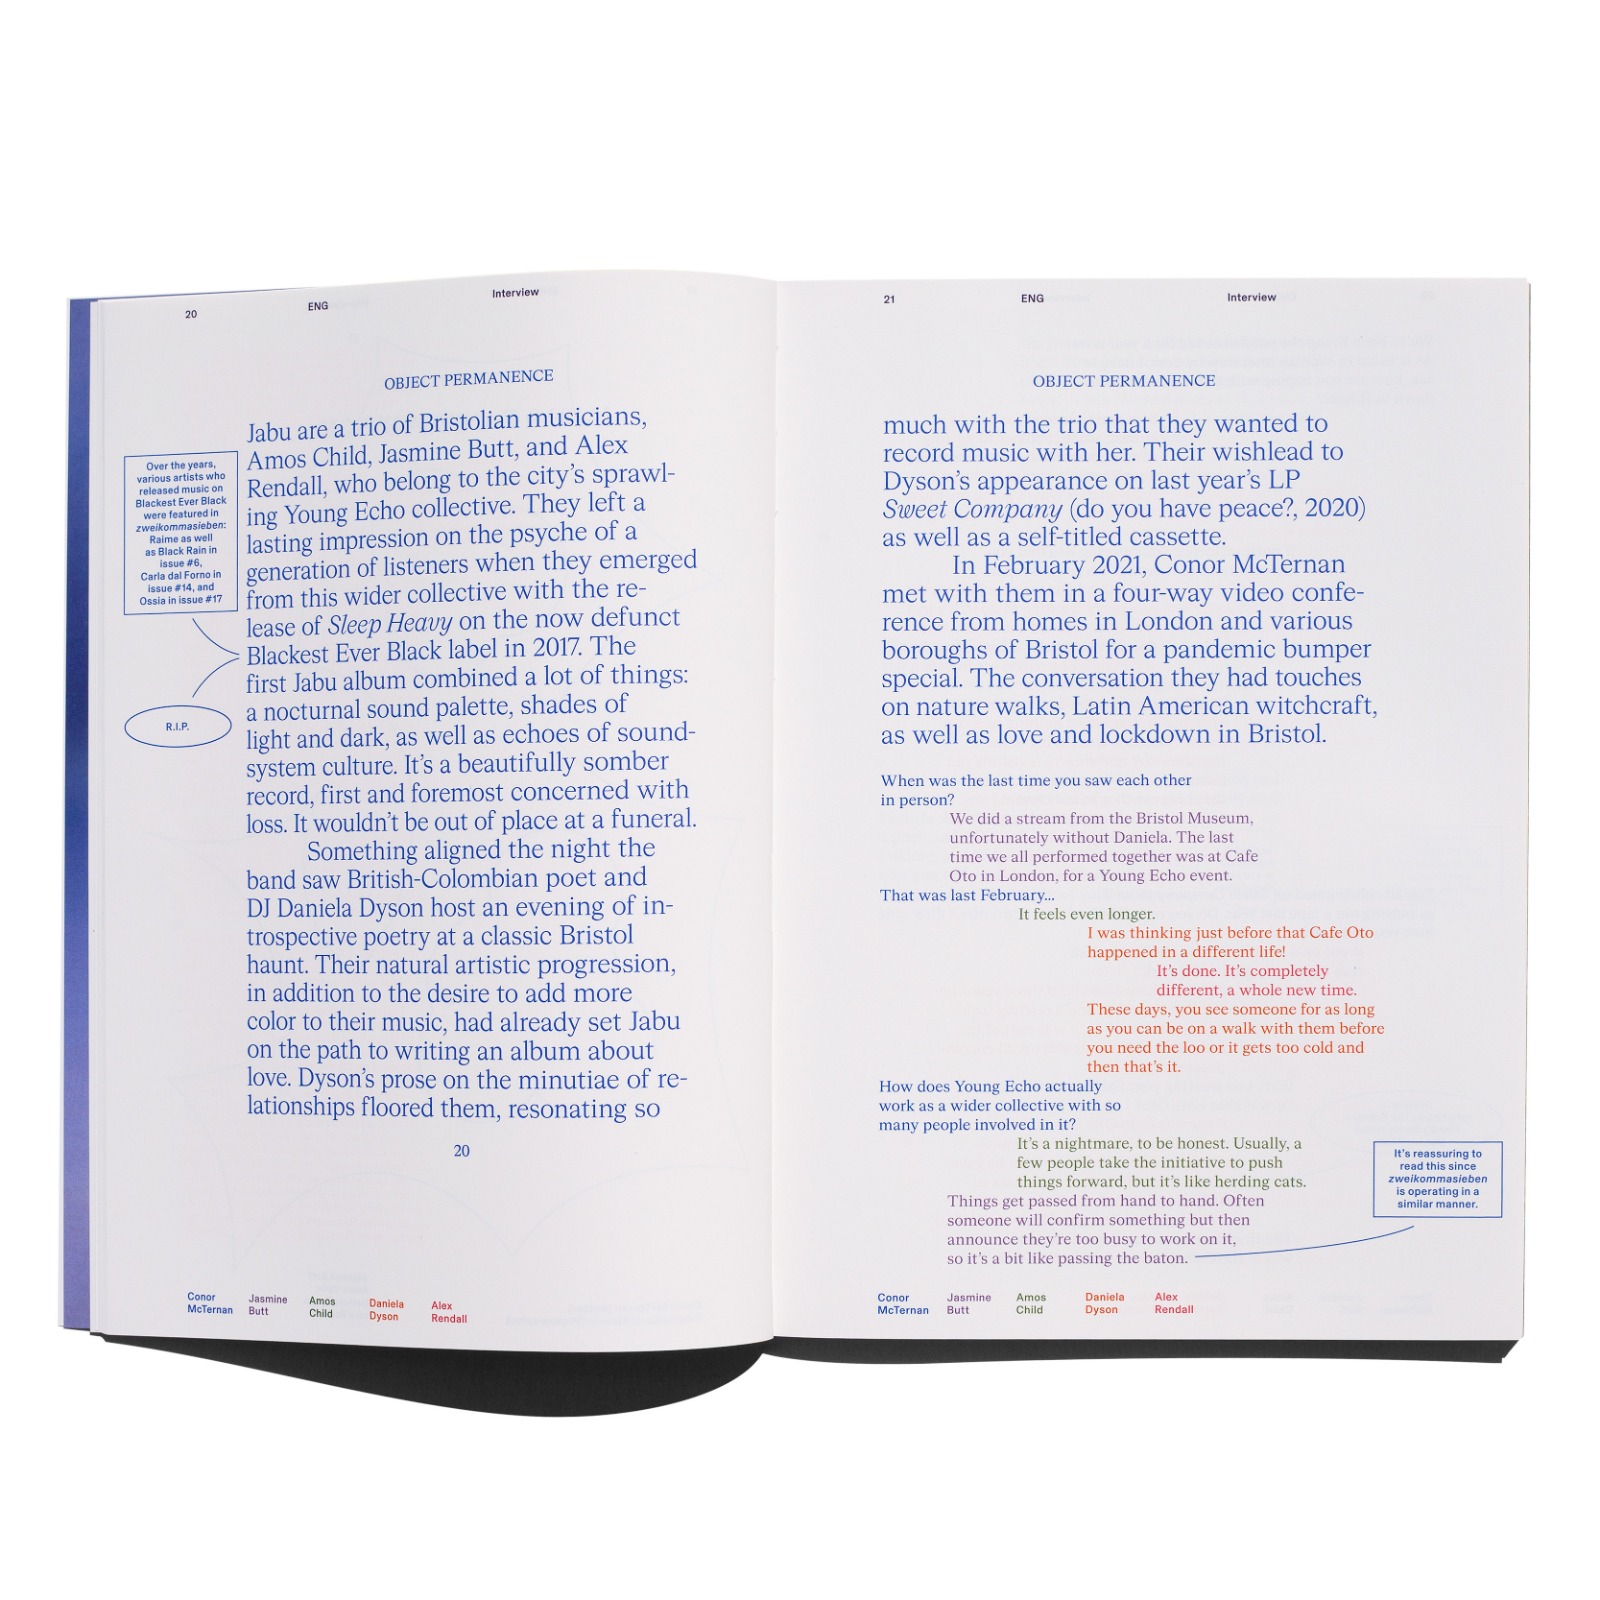 20
ENG
Interview
OBJECT PERMANENCE
Over the years,
various artists who
released music on
Blackest Ever Black
were featured in
zweikommasieben:
Raime as well
as Black Rain in
issue #6,
Carla dal Forno in
issue #14, and
Ossia in issue #17
R.I.P.
Jabu are a trio of Bristolian musicians,
Amos Child, Jasmine Butt, and Alex
Rendall, who belong to the city's sprawl-
ing Young Echo collective. They left a
lasting impression on the psyche of a
generation of listeners when they emerged
from this wider collective with the re-
lease of Sleep Heavy on the now defunct
Blackest Ever Black label in 2017. The
first Jabu album combined a lot of things:
a nocturnal sound palette, shades of
light and dark, as well as echoes of sound-
system culture. It's a beautifully somber
record, first and foremost concerned with
loss. It wouldn't be out of place at a funeral.
Something aligned the night the
band saw British-Colombian poet and
DJ Daniela Dyson host an evening of in-
trospective poetry at a classic Bristol
haunt. Their natural artistic progression,
in addition to the desire to add more
color to their music, had already set Jabu
on the path to writing an album about
love. Dyson's prose on the minutiae of re-
lationships floored them, resonating so
20
Conor
McTernan
Jasmine
Butt
Amos
Child
Daniela
Dyson
Alex
Rendall
21
ENG
Interview
OBJECT PERMANENCE
much with the trio that they wanted to
record music with her. Their wishlead to
Dyson's appearance on last year's LP
Sweet Company (do you have peace?, 2020)
as well as a self-titled cassette.
In February 2021, Conor McTernan
met with them in a four-way video confe-
rence from homes in London and various
boroughs of Bristol for a pandemic bumper
special. The conversation they had touches
on nature walks, Latin American witchcraft,
as well as love and lockdown in Bristol.
When was the last time you saw each other
in person?
We did a stream from the Bristol Museum,
unfortunately without Daniela. The last
time we all performed together was at Cafe
Oto in London, for a Young Echo event.
That was last February...
It feels even longer.
I was thinking just before that Cafe Oto
happened in a different life!
It's done. It's completely
different, a whole new time.
These days, you see someone for as long
as you can be on a walk with them before
you need the loo or it gets too cold and
then that's it.
How does Young Echo actually
work as a wider collective with so
many people involved in it?
It's a nightmare, to be honest. Usually, a
few people take the initiative to push
things forward, but it's like herding cats.
Things get passed from hand to hand. Often
someone will confirm something but then
announce they're too busy to work on it,
so it's a bit like passing the baton.
It's reassuring to
read this since
zweikommasieben
is operating in a
similar manner.
Conor
McTernan
Jasmine
Butt
Amos
Child
Daniela
Dyson
Alex
Rendall